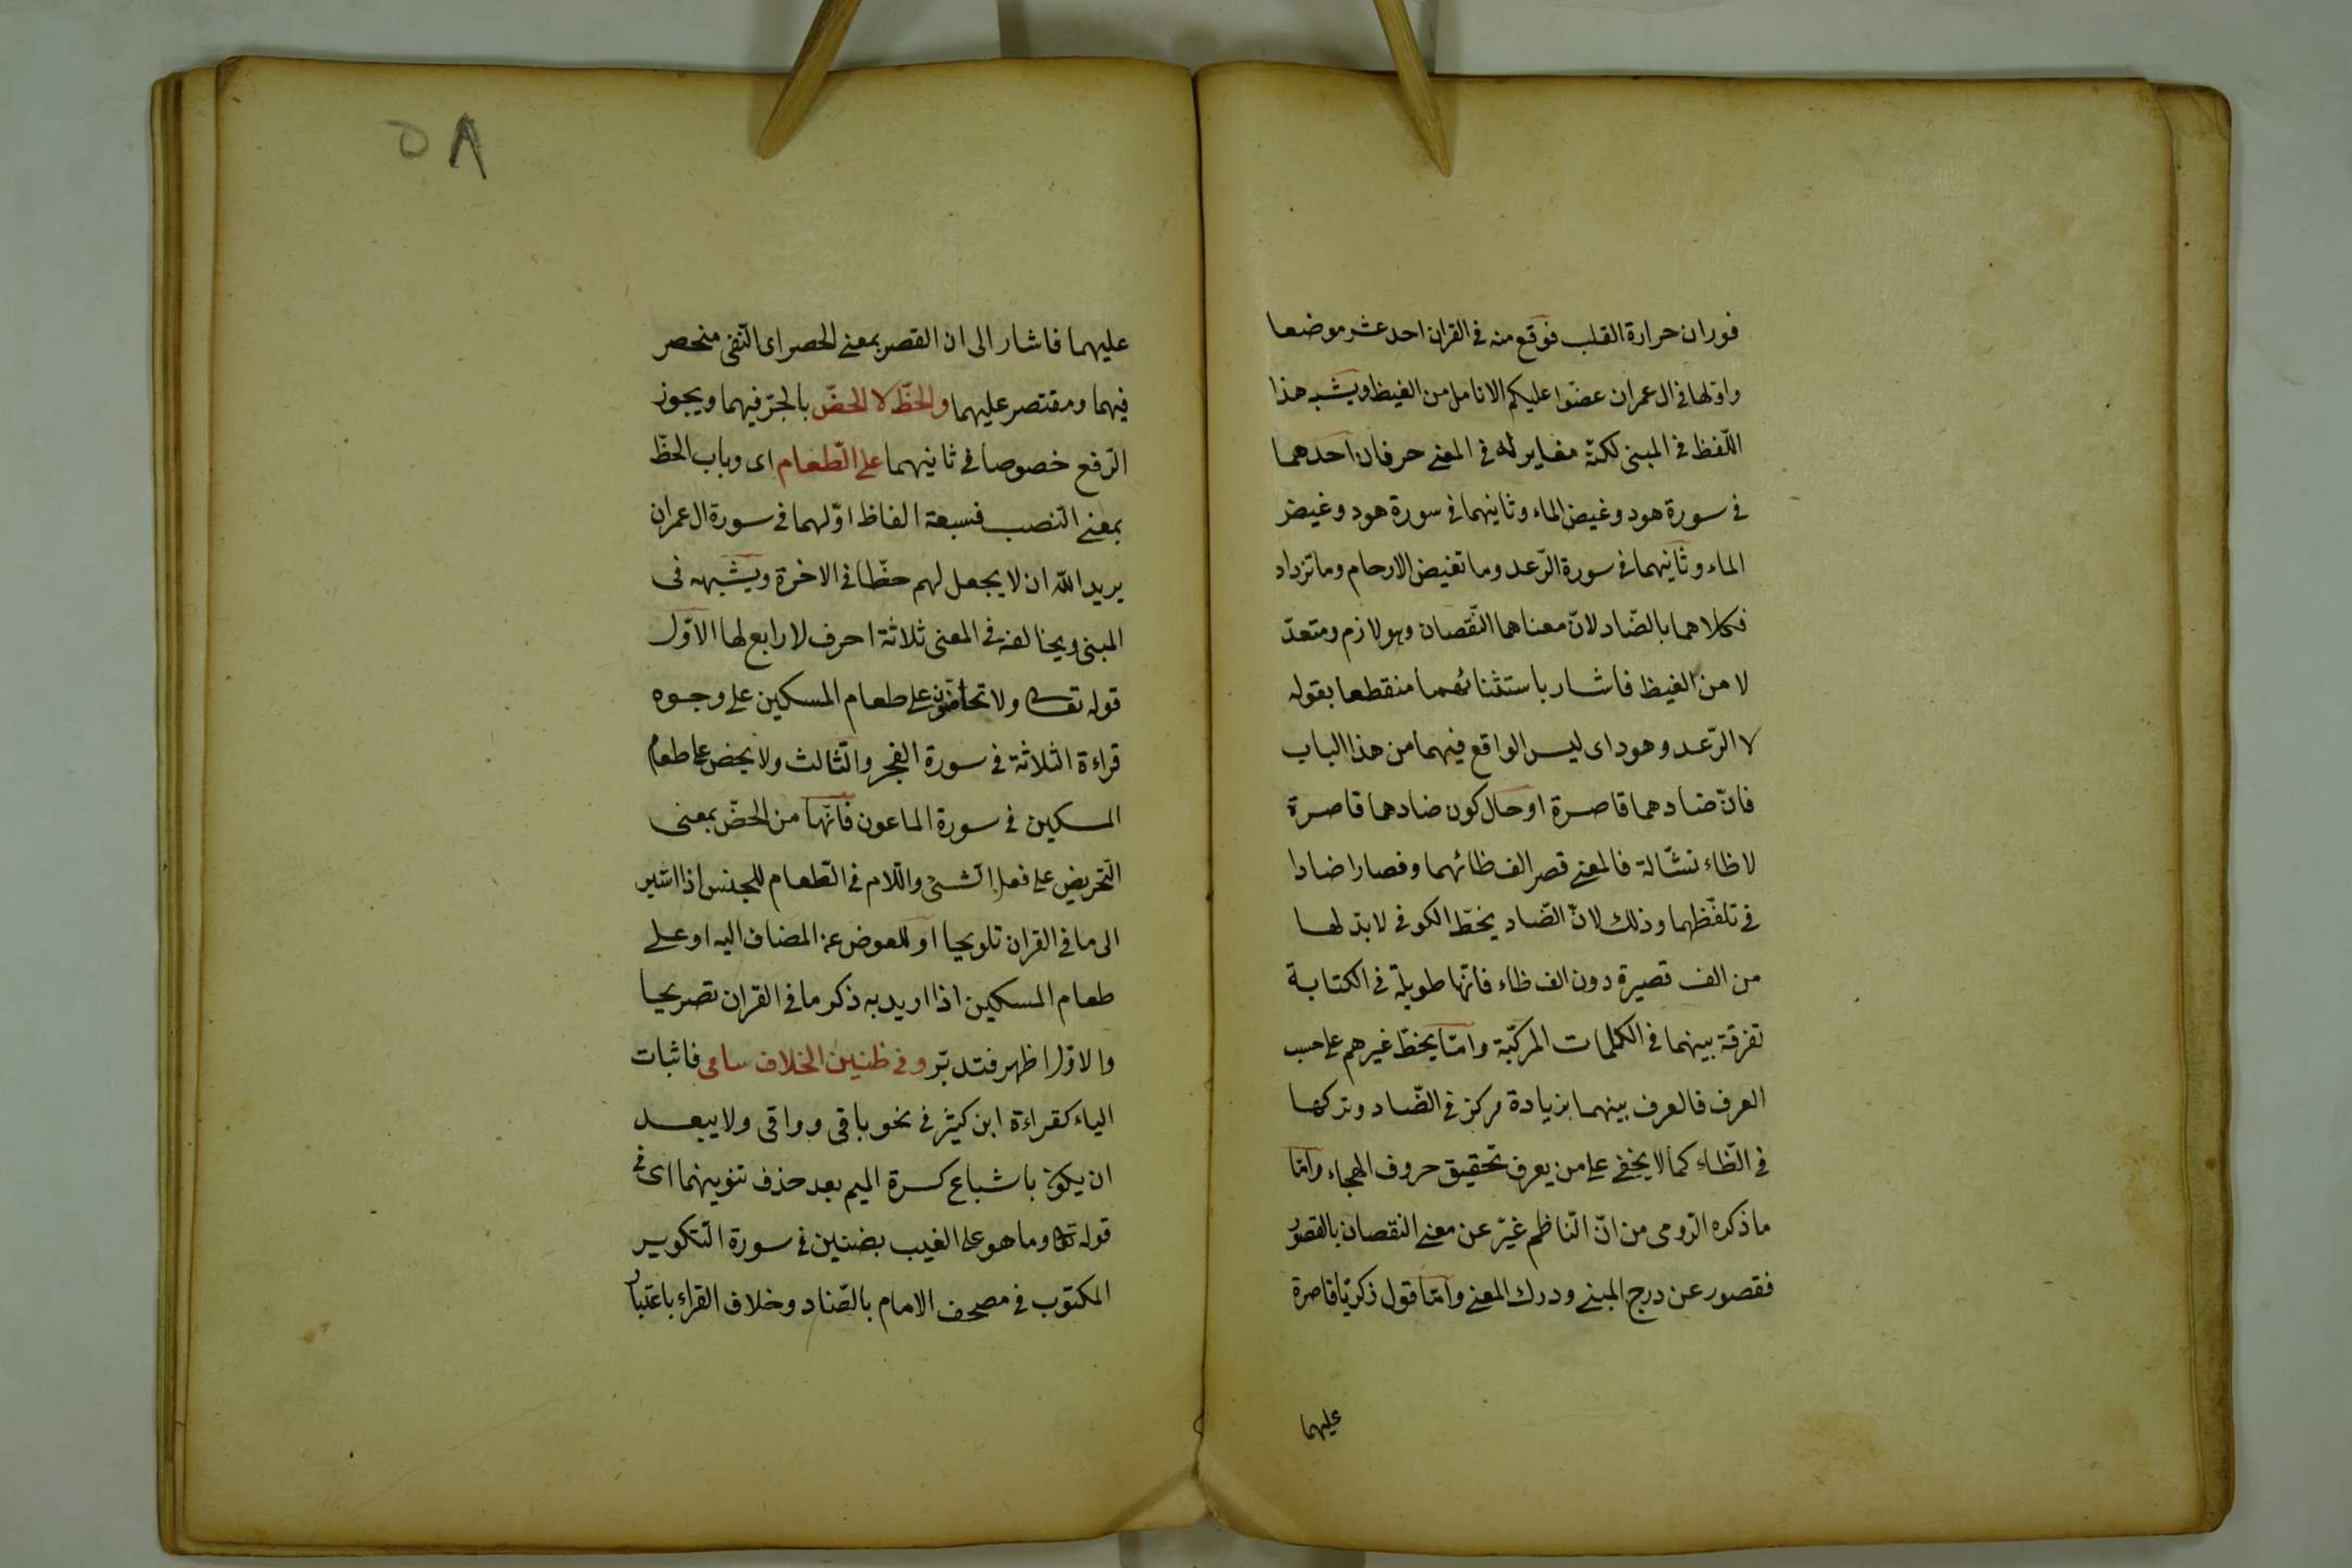 فوران حرارة القلب فوقع منه في القران احد عشر موضعا
واوّلها في ال عمران عضّوا عليكم الانامل من الغيظ ويشبه هذا
اللّفظ في المبنى لكنّه مغاير له في المعنى حرفان احدهما
في سورة هود وغيض الماء وثانيهما في سورة هود وغيض
الماء وثانيهما في سورة الرّعد وما تغيض الارحام وما تزداد
فكلاهما بالضّاد لانّ معناهما النّقصان وهو لازم ومتعدّ
لا من الغيظ فاشار باستثنائهما منقطعا بقوله
لا الرّعد وهود اى ليس الواقع فيهما من هذا الباب
فانّ ضادهما قاصرة او حال كون ضادهما قاصرة
لا ظاء نشّالة فالمعنى قصر الف ظائهما وفصارا ضادا
في تلفّظهما وذلك لانّ الضّاد بخطّ الكوفى لا بدّ لها
من الف قصيرة دون الف ظاء فانّها طويلة في الكتابة
تفرقة بينهما في الكلمات المركّبة وامّا بخطّ غيرهم على حسب
العرف فالعرف بينهما بزيادة مركز في الضّاد وتركها
في الظّاء كما لا يخفى على من يعرف تحقيق حروف الهجاء وامّا
ما ذكره الرّومى من انّ النّاظم غيّر عن معنى النقصان بالقصور
فقصور عن درج المبنى ودرك المعنى وامّا قول زكريّا قاصرة
عليهما
٥٨
عليهما فاشار الى ان القصر بمعنى الحصر اى النّفى منحصر
فيهما ومقتصر عليهما والحظّ لا الحضّ بالجرّ فيهما ويجوز
الرّفع خصوصا في ثانيهما على الطّعام اى وباب الحظّ
بمعنى النّصب فسبعة الفاظ اوّلهما في سورة ال عمران
يريد الله ان لا يجعل لهم حظّا في الاخرة ويشبهه في
المبنى ويخالفه في المعنى ثلاثة احرف لا رابع لها الاوّل
قوله تعالى ولا تحاضّون على طعام المسكين على وجوه
قراءة الثلاثة في سورة الفجر والثّالث ولا يحض على طعام
المسكين في سورة الماعون فانّها من الحضّ بمعنى
التّحريض على فعل الشّئ واللّام في الطّعام للجنس اذا اشير
الى ما في القران تلويحا او للعوض عن المضاف اليه او على
طعام المسكين اذا اريد به ذكر ما في القران تصريحا
والاوّل اظهر فتدبّر وفي ظنين الخلاف سامى فاثبات
الياء كقراءة ابن كثير في نحو باقى وواقى ولا يبعد
ان يكون باشباع كسرة الميم بعد حذف تنوينهما اى في
قوله تعالى وما هو على الغيب بضنين في سورة التّكوير
المكتوب في مصحف الامام بالضّاد وخلاف القراء باعتبار